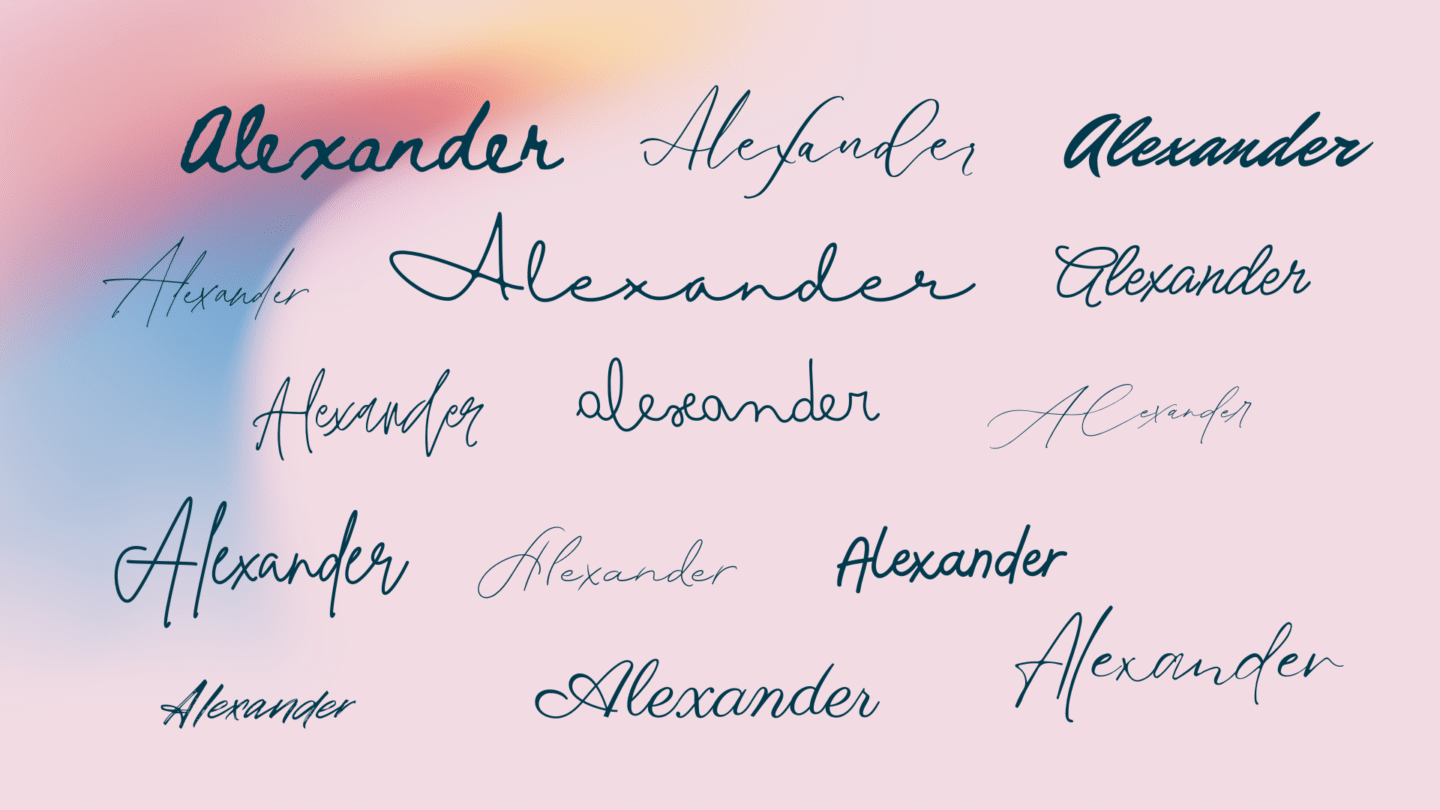 Alexander Alexander Alexander
Alexander Alexander Alexander
Alexander alexander Alexander
Alexander Alexander Alexander
Alexander Alexander Alexander